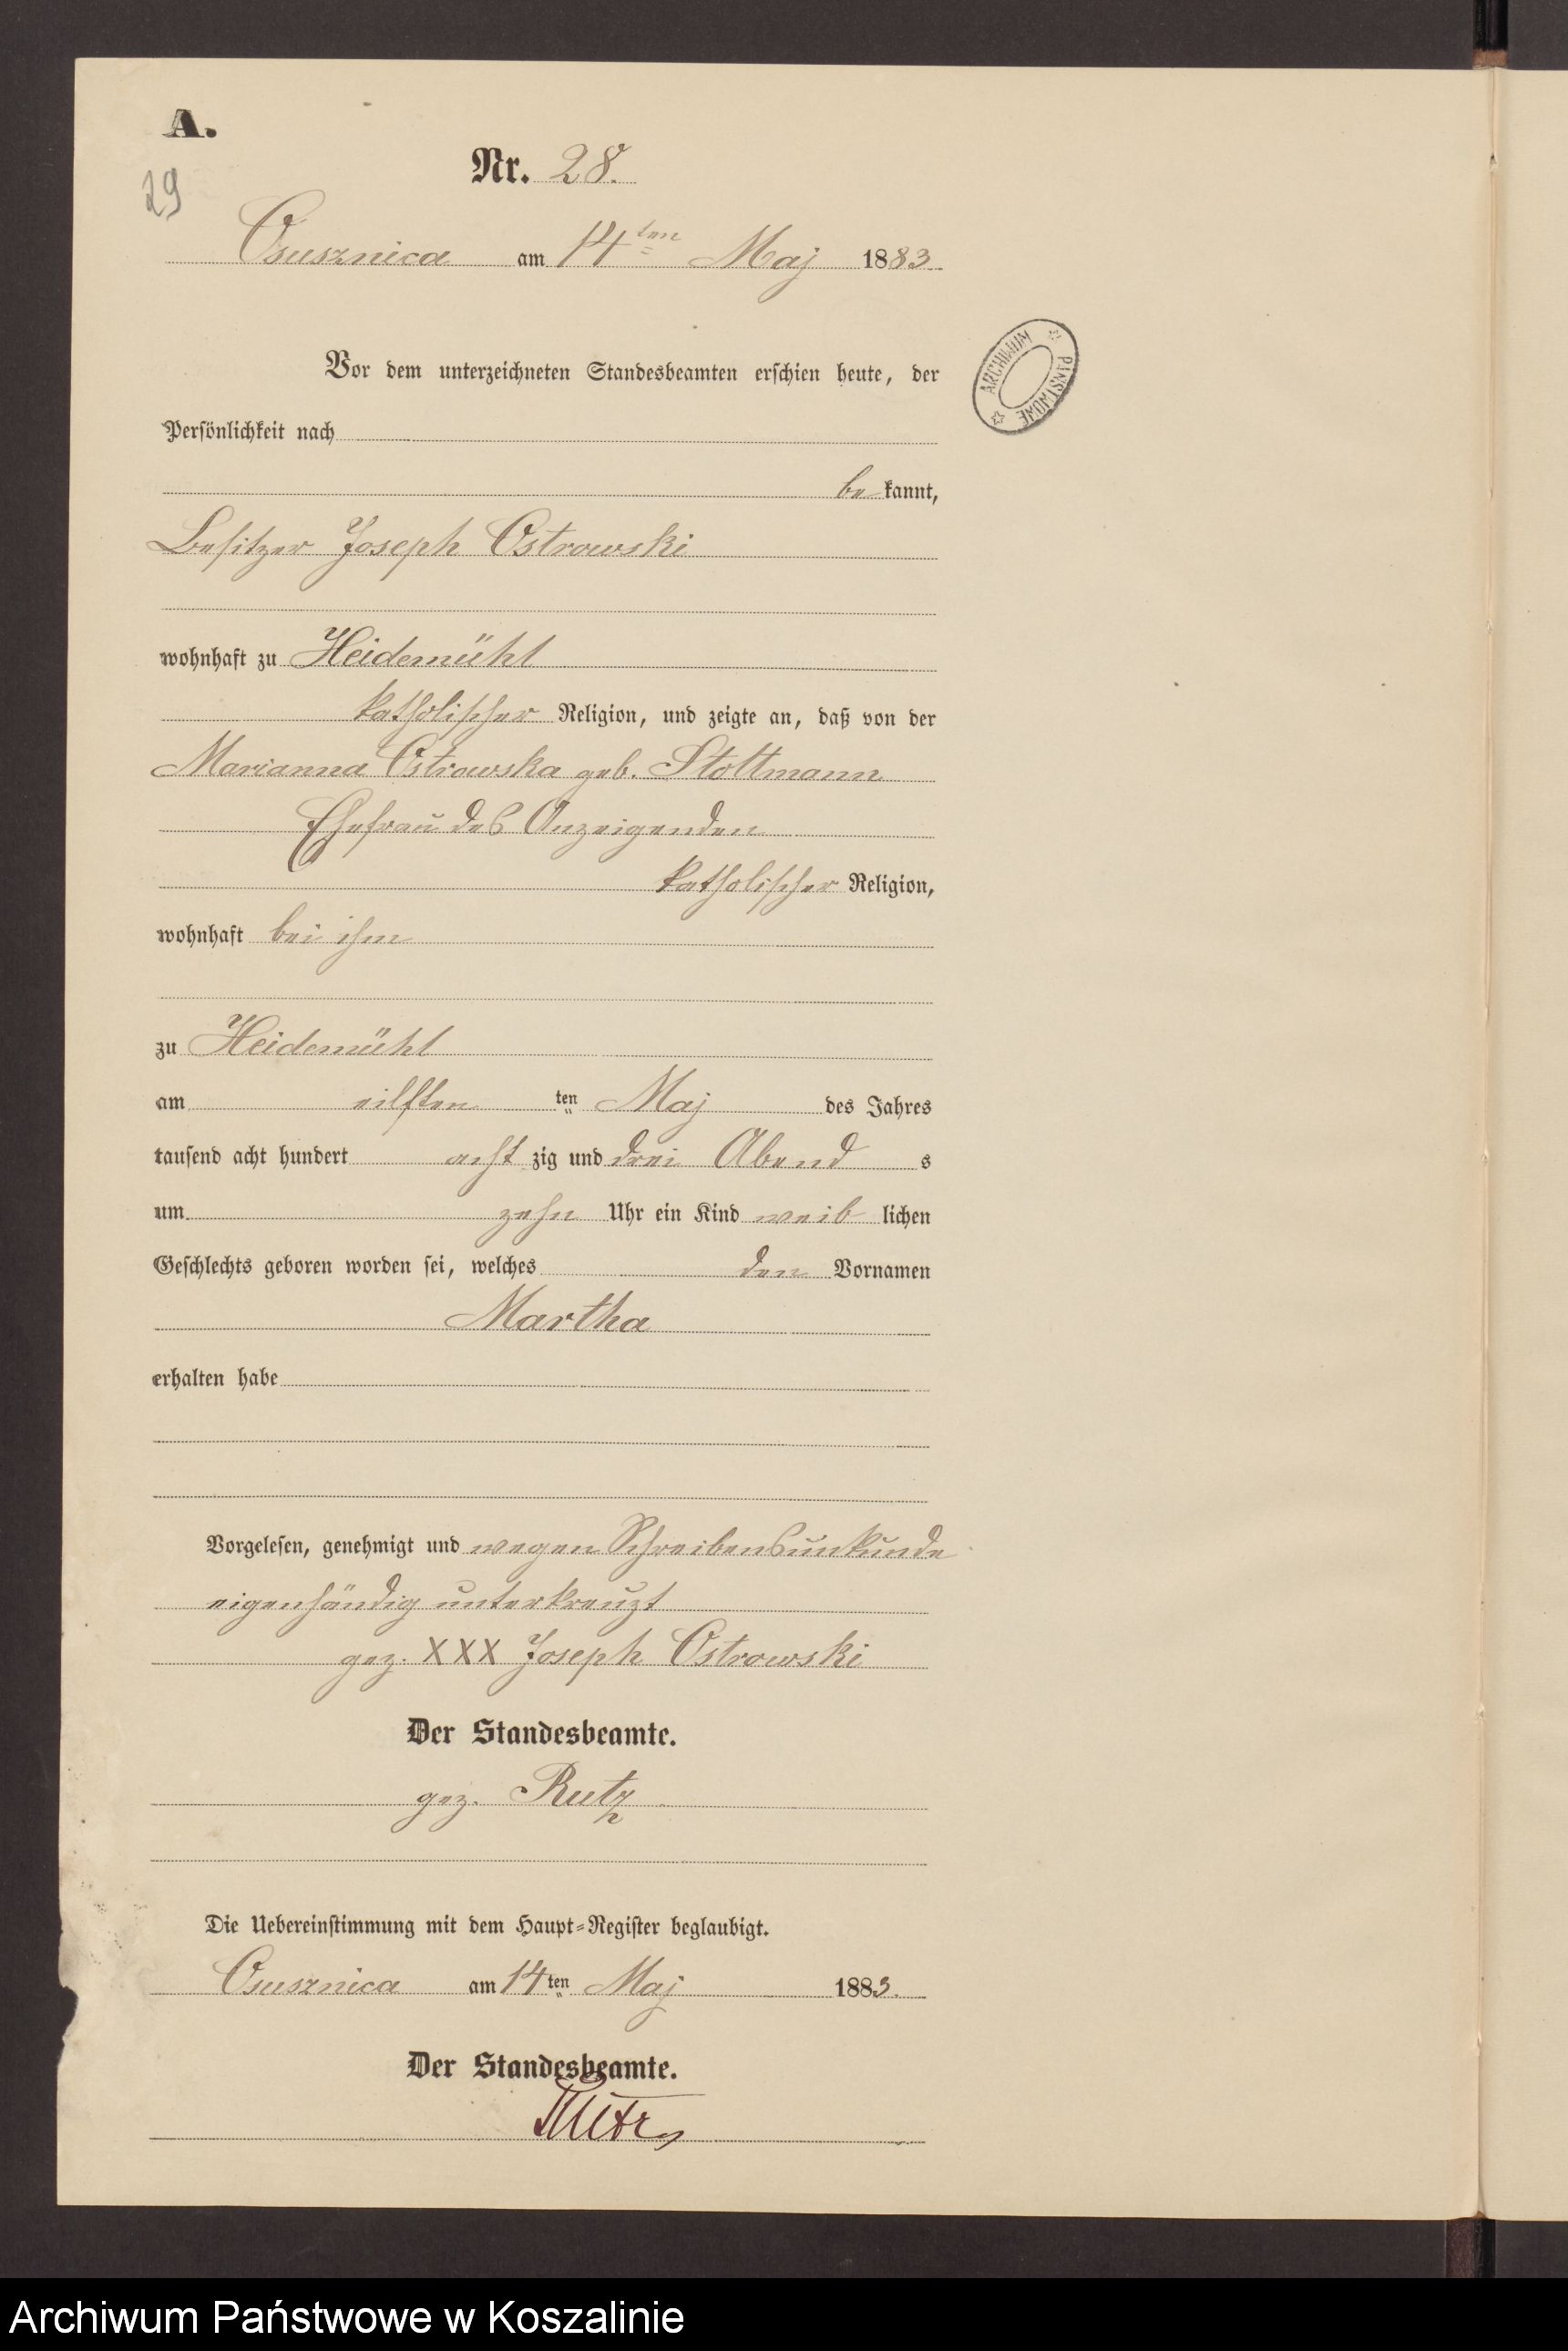 A.
Nr. 28.
29
Osusznica am 14ten Maj 1883
Vor dem unterzeichneten Standesbeamten erschien heute, der
Persönlichkeit nach
be kannt,
Besitzer Joseph Ostrowski
wohnhaft zu Heidemühl
katholischer Religion, und zeigte an, daß von der
Marianna Ostrowska geb. Stoltmann
Ehefrau des Anzeigenden
katholischer Religion,
wohnhaft bei ihm
zu Heidemühl
am eilften ten Maj des Jahres
tausend acht hundert acht zig und drei Abend s
um zehn Uhr ein Kind weib lichen
Geschlechts geboren worden sei, welches den Vornamen
Martha
erhalten habe
Vorgelesen, genehmigt und wegen Schreibensunkunde
eigenhändig unterkreuzt
gez. XXX Joseph Ostrowski
Der Standesbeamte.
gez. Rutz
Die Uebereinstimmung mit dem Haupt-Register beglaubigt.
Osusznica am 14ten Maj 1883.
Der Standesbeamte.
Rutz
ARCHIWUM PAŃSTWOWE
Archiwum Państwowe w Koszalinie